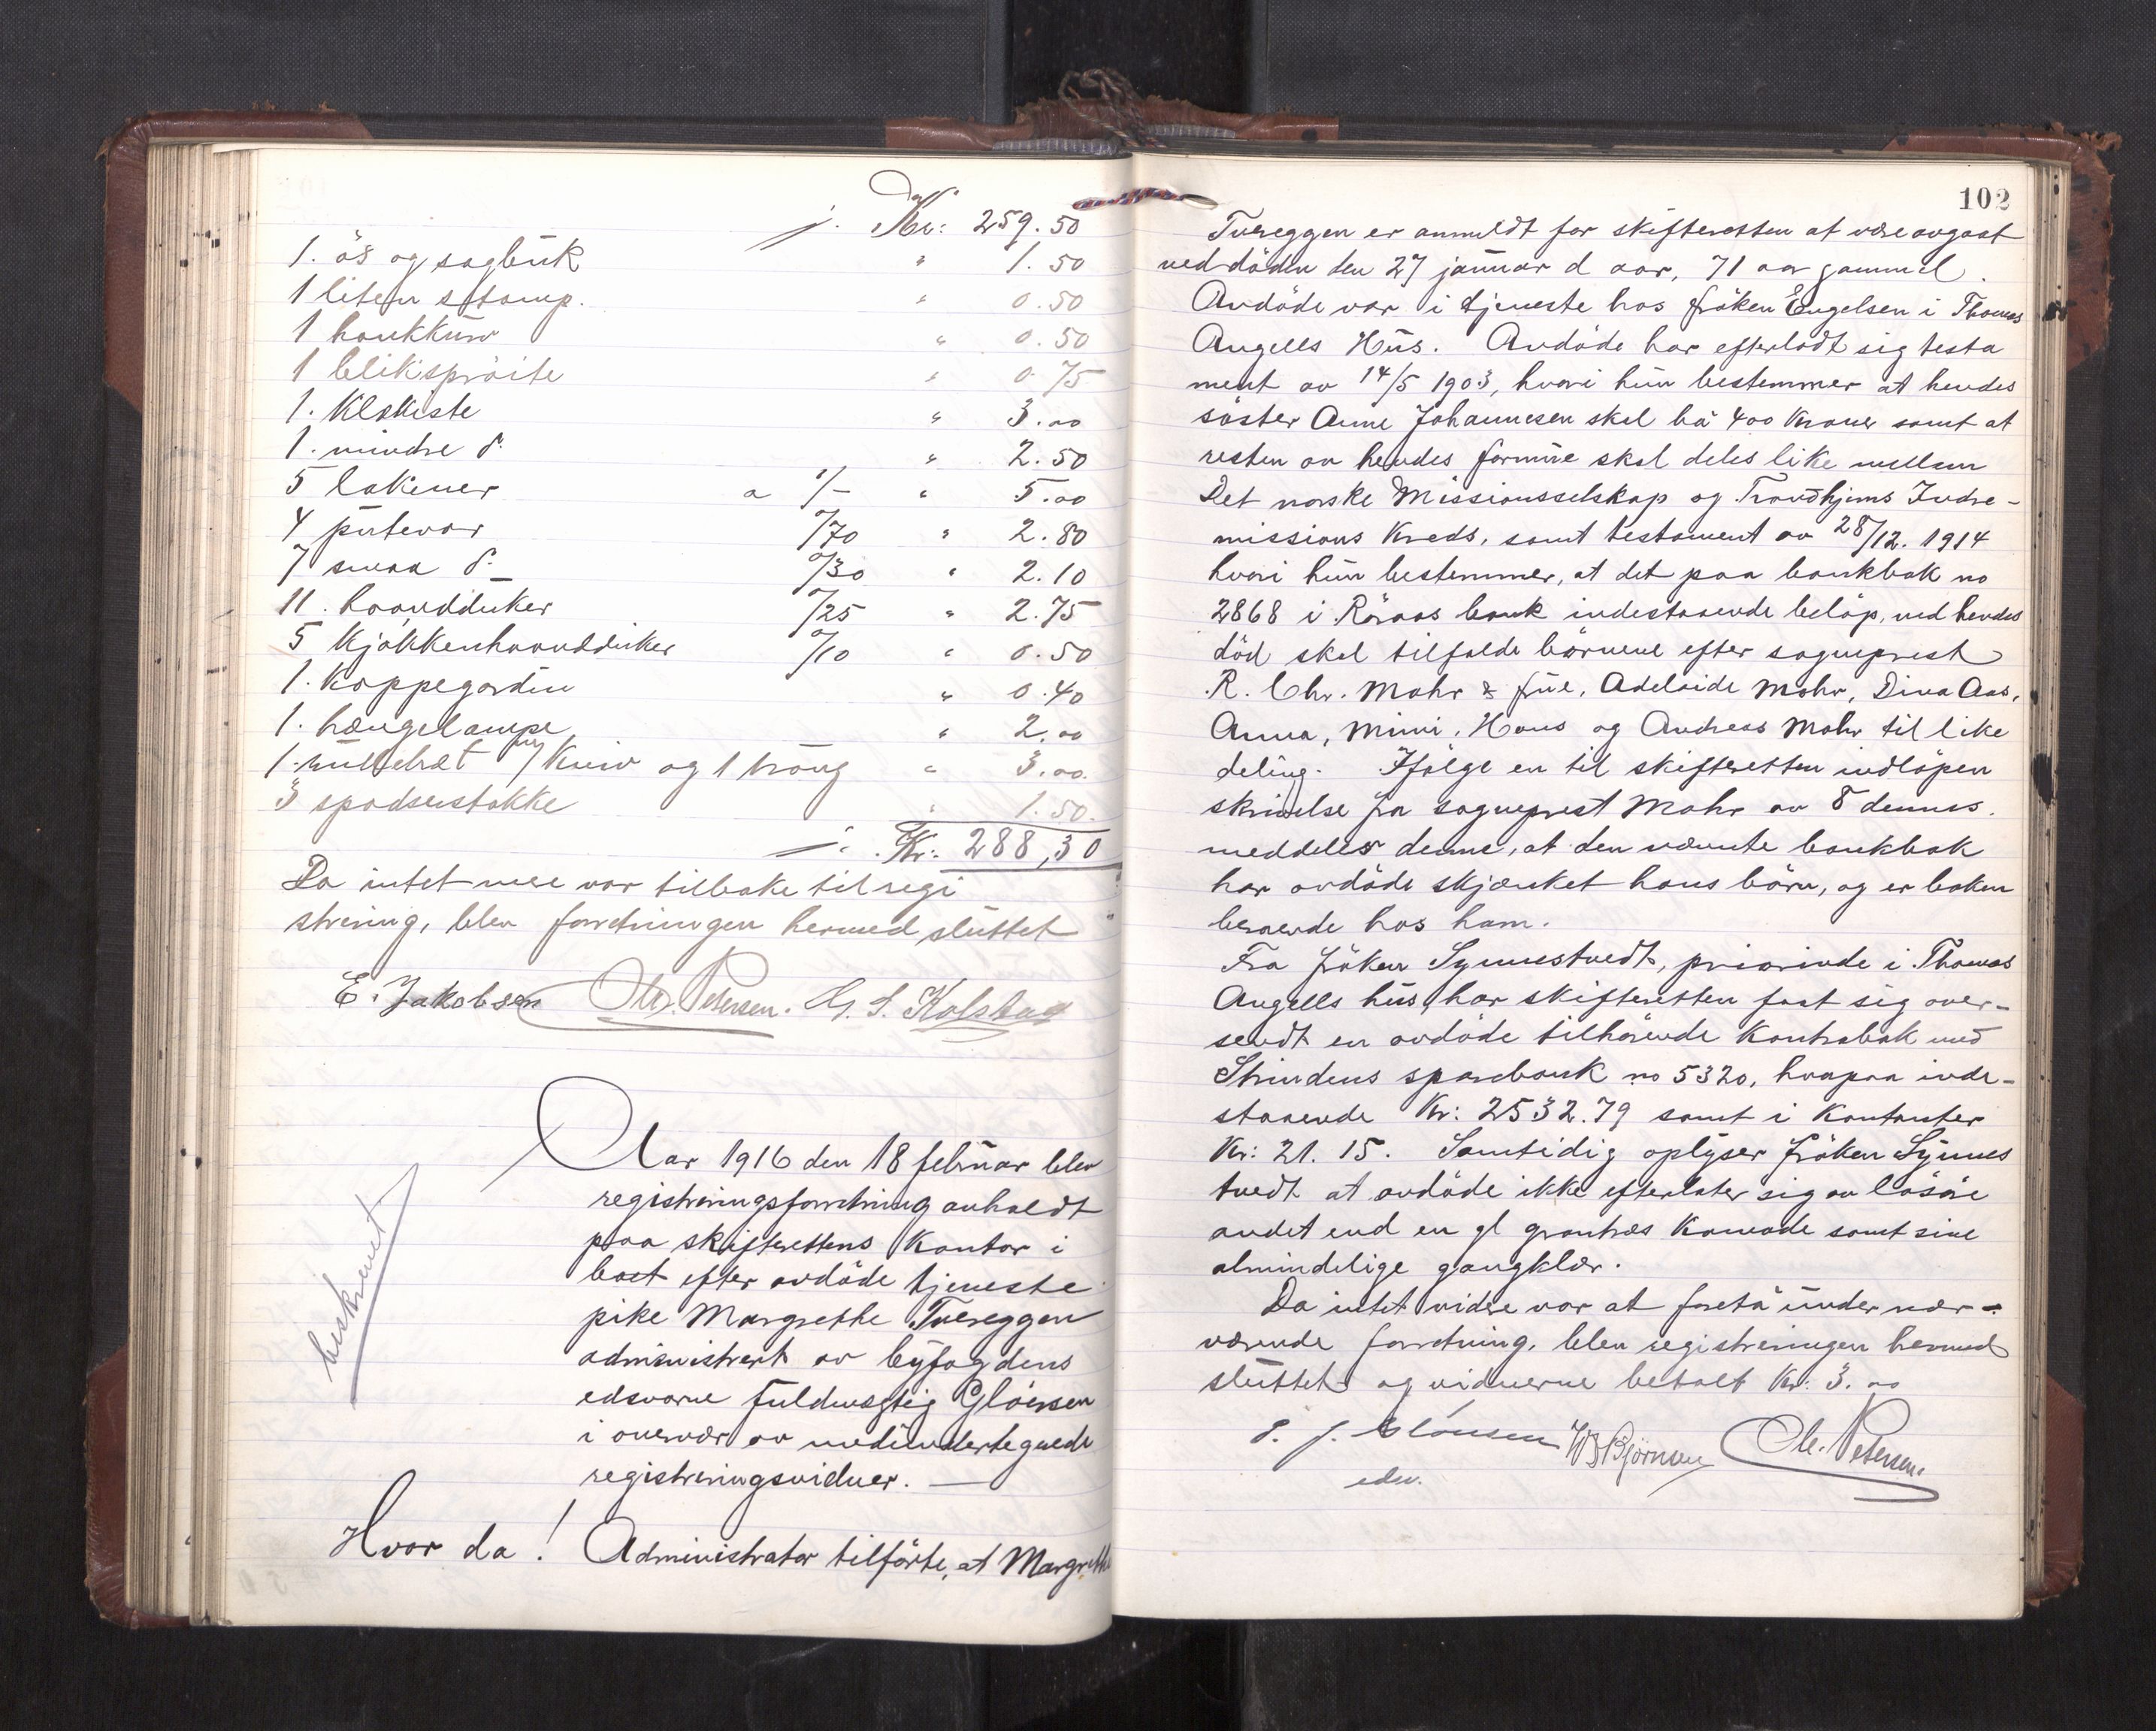 ./. Kr: 259.50
1. øs og sagbuk " 1.50
1 liten stamp. " 0.50
1 hankkurv " 0.50
1 bliksprøite " 0.75
1. Klæskiste " 3.00
1. mindre do " 2.50
5 lakener a 1/- " 5.00
4 putevar "/70 " 2.80
7 smaa do "/30 " 2.10
11. haandduker "/25 " 2.75
5 kjøkkenhaandduker "/10 " 0.50
1. kappegardin " 0.40
1. hængelampe " 2.00
1. rullebræt m/ kniv og 1 " 3.00.
3 spadserstokke " 1.50.
./. Kr: 288,30
Da intet mere var tilbake til regi
strering, blev forretningen hermed sluttet
E. Jakobsen Chr. Petersen. G. S. Kolstad
beskrevet
Aar 1916 den 18 februar blev
registreringsforretning avholdt
paa skifterettens kontor i
boet efter avdøde tjeneste
pike Margrethe Tvereggen
administrert av byfogdens
edsvorne fuldmægtig Gløersen
i overvær av medundertegnede
registreringsvidner. —
Hvor da! Administrator tilførte, at Margrethe
102
Tvereggen er anmeldt for skifteretten at være avgaat
ved døden den 27 januar d aar, 71 aar gammel.
Avdøde var i tjeneste hos frøken Engelsen i Thomas
Angells Hus. Avdøde har efterladt sig testa
ment av 14/5 1903, hvori hun bestemmer at hendes
søster Anne Johannesen skal ha 400 Kroner samt at
resten av hendes formue skal deles like mellem
Det norske Missionsselskap og Trondhjems Indre-
missions Kreds, samt testament av 28/12. 1914
hvori hun bestemmer, at det paa bankbok no
2868 i Røraas bank indestaaende beløp, ved hendes
død skal tilfalde børnene efter sogneprest
R. Chr. Mohr & frue, Adelaide Mohr, Dina Aas,
Anna, Mimi, Hans og Andreas Mohr til like
deling. Ifølge en til skifteretten indløpen
skrivelse fra sogneprest Mohr av 8 dennes.
meddeler denne, at den nævnte bankbok
har avdøde skjænket hans børn, og er boken
beroende hos ham.
Fra frøken Synnestvedt, priorinde i Thomas
Angells hus, har skifteretten faat sig over-
sendt en avdøde tilhørende Kontrabok med
Strindens sparebank no 5320, hvorpaa inde-
staaende Kr: 2532.79 samt i kontanter
Kr: 21.15. Samtidig oplyser frøken Synnes
tvedt at avdøde ikke efterlater sig av løsøre
andet end en gl grantræs Komode samt sine
almindelige gangklær.
Da intet videre var at foreta under nær-
værende forretning, blev registreringen hermed
sluttet og vidnerne betalt Kr: 3.00
J. Gløersen W Bjørnsen Chr. Petersen.
edsv.